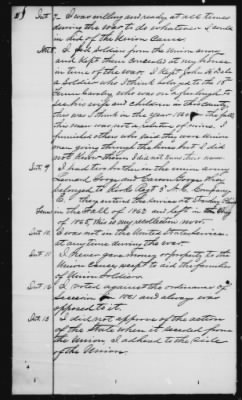 Int. 7. I was willing and ready at all times
during the war to do whatever I could
in aid of the Union Cause.
Int. 8. I fed Soldiers from the Union army
and kept them concealed at my house
in time of the war. I Kept John
a Soldier who I think belonged to the 10th
Tenn Cavalry who was on a furlough to
see his wife and children in this county
this was I think in the year 186 the fall
this man was not a relative of mine. I
furnished others who said they were Union
men going through the lines but I did
not know them & did not know their names
Int. 9 I had two brothers in the union army
Samuel George and Gainum George they
belonged to Kirks Regt 3 N.C. Company
E & they entered the Service at Strawberry Plains
Tenn in the Fall of 1863 and left in the
of 1865, this is my recollection now.
Int. 10. I was not in the United States Service
at any time during the war.
Int. 11 I never gave money or property to the
Union Cause except to aid the families
of Union Soldiers.
Int. 12 I voted against the ordinance of
Secession in 1861 and always was
opposed to it.
Int. 13 I did not approve of the action
of the State when it seceded from
the Union, I adhered to the Side
of the Union.